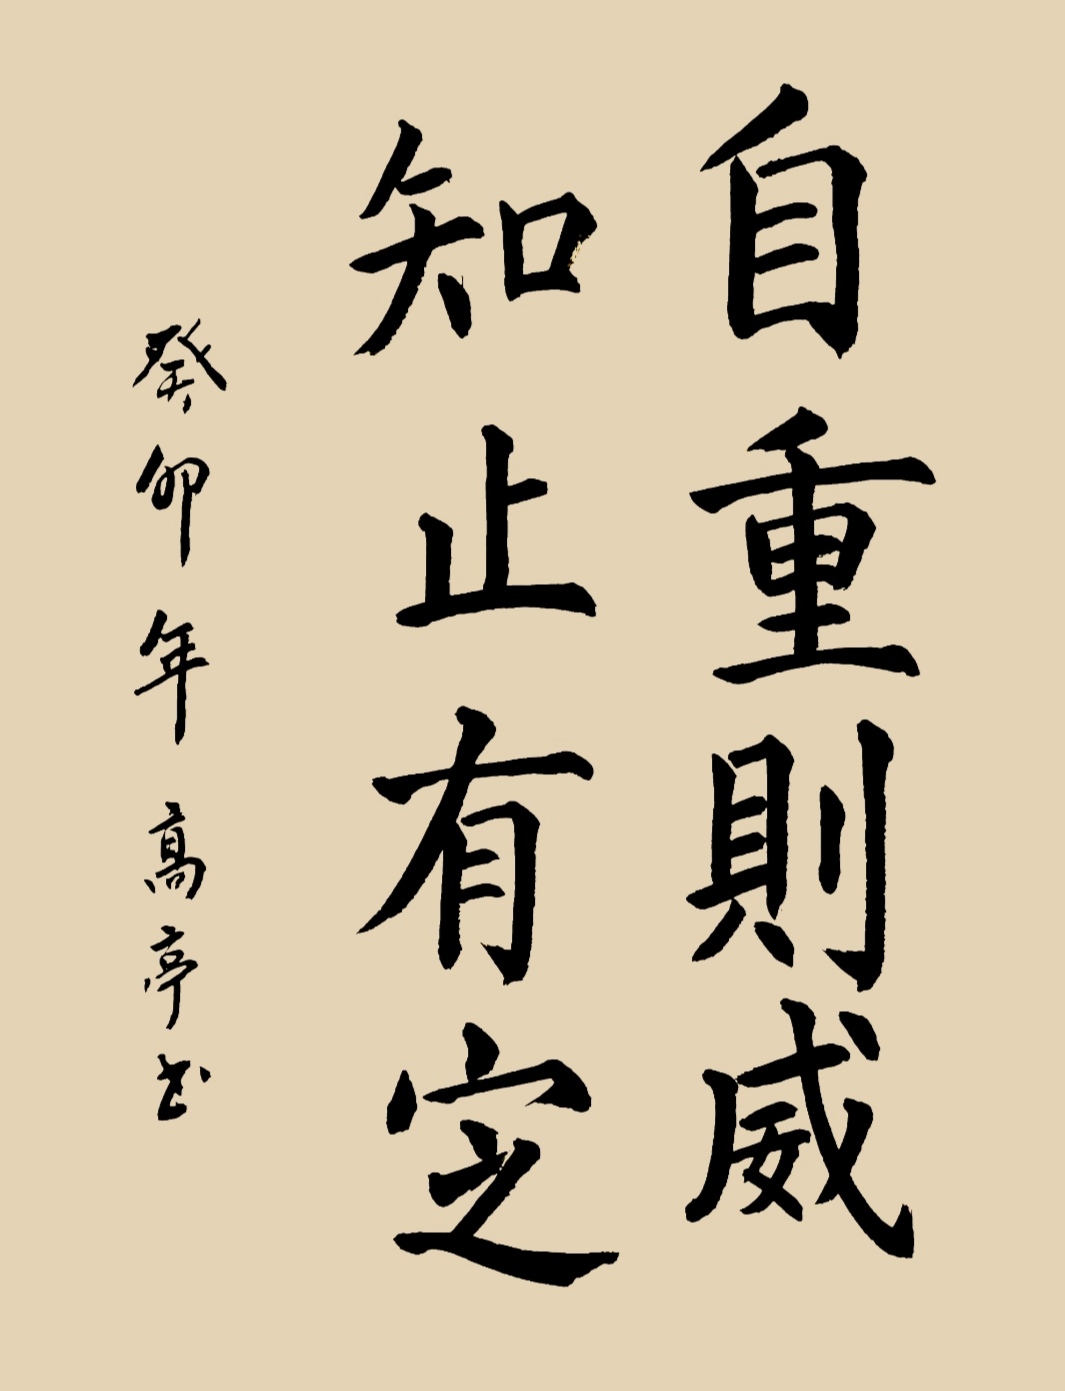 自重則威
知止有定
癸卯年高亭书